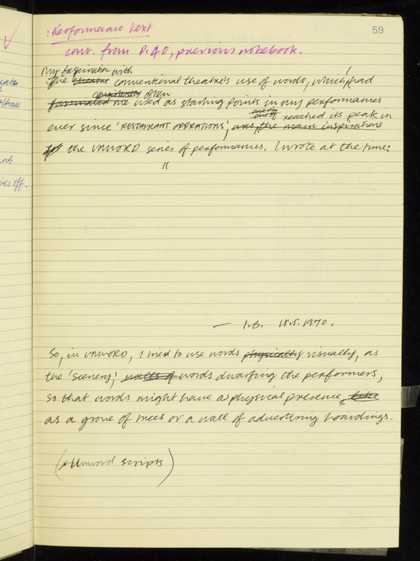 59
: Performance Text
cont. from P.40, previous notebook.
My fascination with
The theatre conventional theatre's use of words, which, had
often
fascinated me used as starting points in my performances
ever since 'RESTAURANT OPERATIONS', reached its peak in
was, the main inspirations
the UNWORD series of performances. I wrote at the time:
"
— I.B. 18.5.1970.
So, in UNWORD, I tried to use words physically visually, as
the 'scenery', walls of words dwarfing the performers,
so that words might have a physical presence,
as a grove of trees or a wall of advertising hoardings.
(Unword scripts)